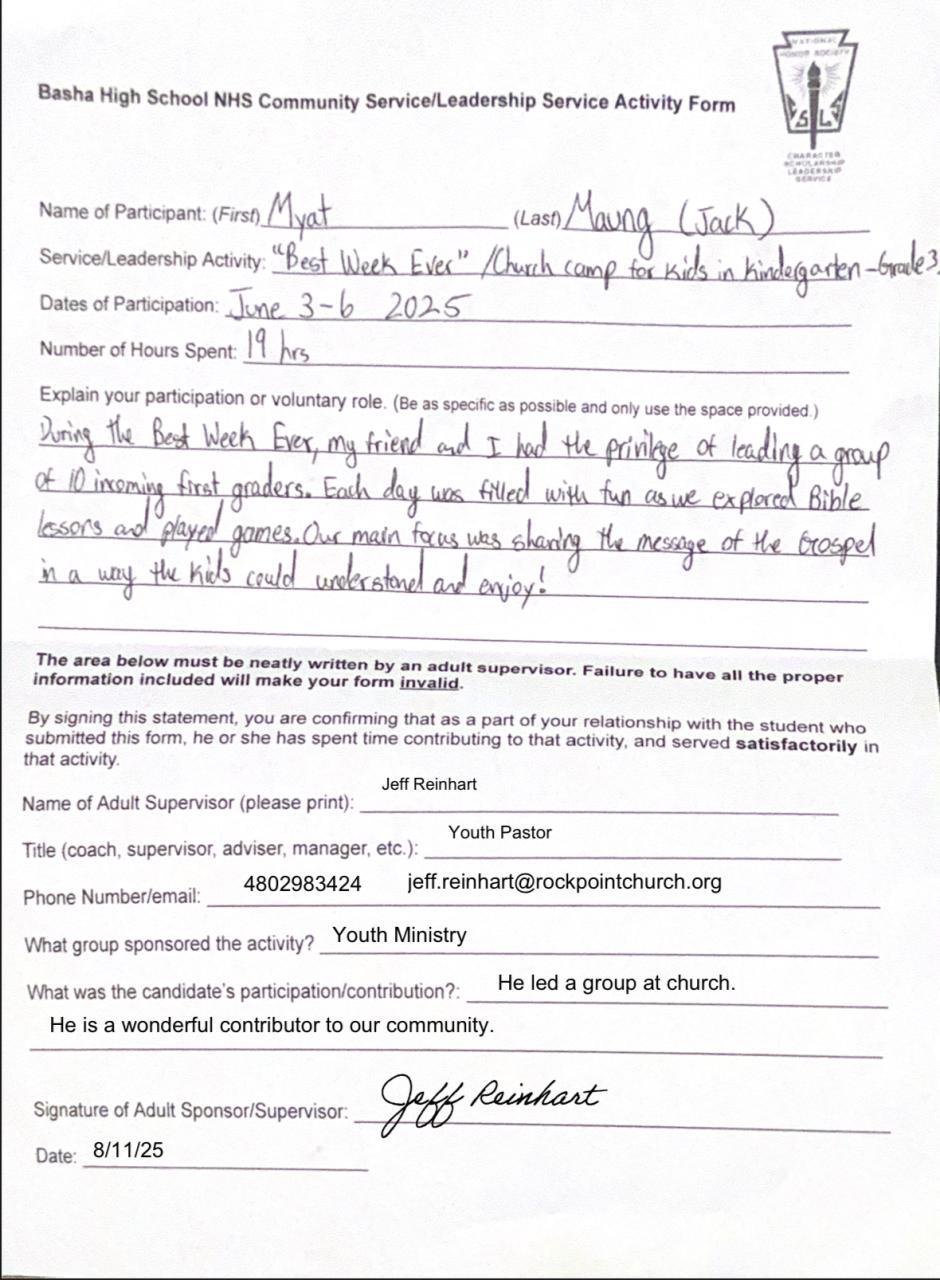 NATIONAL
HONOR SOCIETY
S L
CHARACTER
SCHOLARSHIP
LEADERSHIP
SERVICE
Basha High School NHS Community Service/Leadership Service Activity Form
Name of Participant: (First) Myat (Last) Maung (Jack)
Service/Leadership Activity: "Best Week Ever" /Church camp for kids in Kindergarten-Grade 3.
Dates of Participation: June 3-6 2025
Number of Hours Spent: 19 hrs
Explain your participation or voluntary role. (Be as specific as possible and only use the space provided.)
During the Best Week Ever, my friend and I had the privilege of leading a group
of 10 incoming first graders. Each day was filled with fun as we explored Bible
lessons and played games. Our main focus was sharing the message of the Gospel
in a way the kids could understand and enjoy!
The area below must be neatly written by an adult supervisor. Failure to have all the proper
information included will make your form invalid.
By signing this statement, you are confirming that as a part of your relationship with the student who
submitted this form, he or she has spent time contributing to that activity, and served satisfactorily in
that activity.
Name of Adult Supervisor (please print): Jeff Reinhart
Title (coach, supervisor, adviser, manager, etc.): Youth Pastor
Phone Number/email: 4802983424 jeff.reinhart@rockpointchurch.org
What group sponsored the activity? Youth Ministry
What was the candidate's participation/contribution?: He led a group at church.
He is a wonderful contributor to our community.
Signature of Adult Sponsor/Supervisor: Jeff Reinhart
Date: 8/11/25